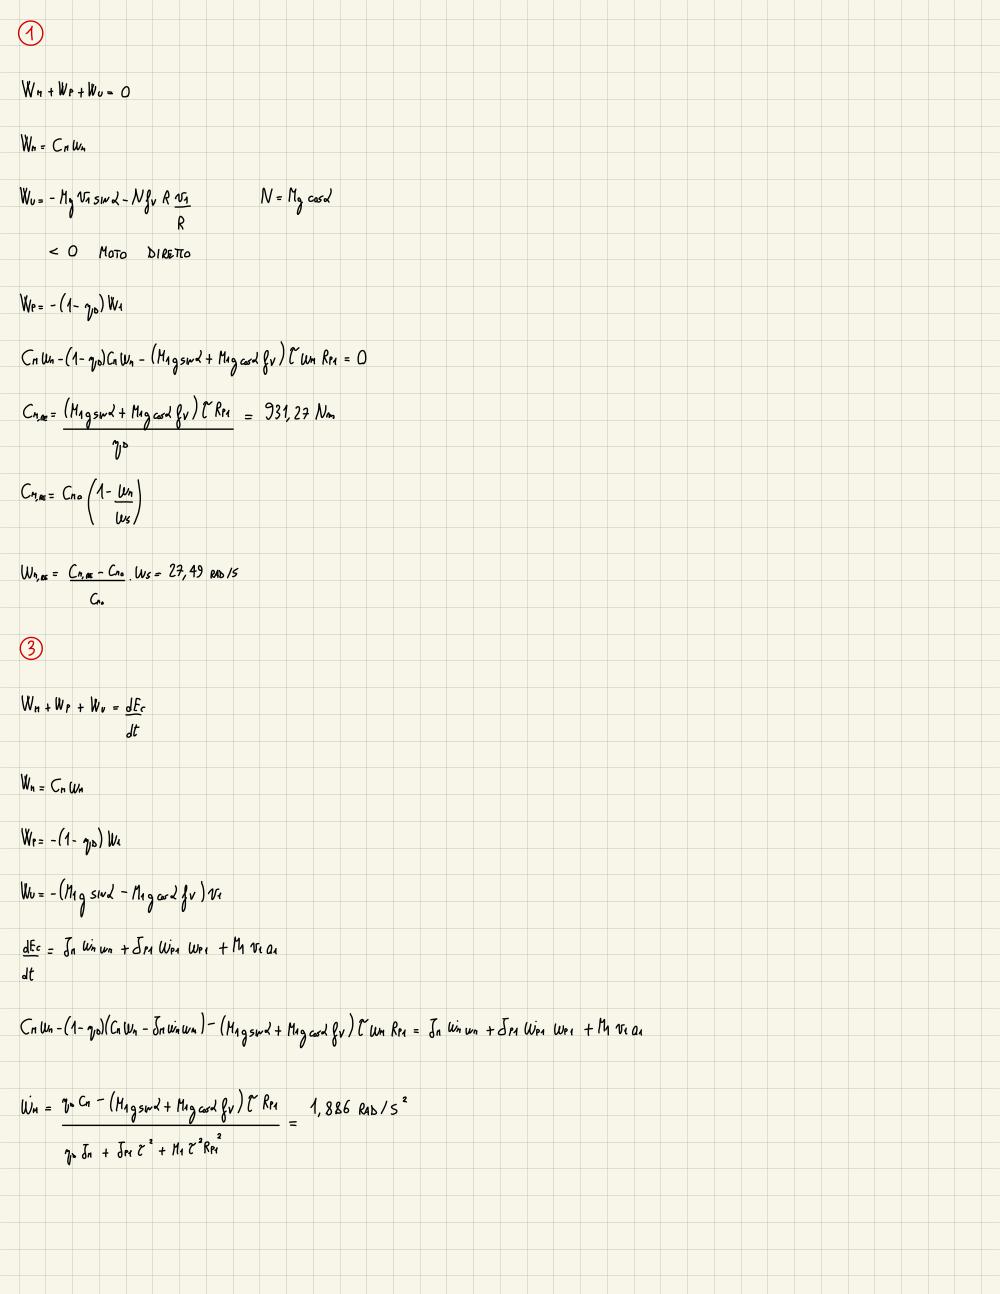 1
W_M + W_P + W_U = 0
W_M = C_M ω_M
W_U = - M g v_1 sin α - N f_V R v_1/R N = M g cos α
< 0 MOTO DIRETTO
W_P = -(1 - η_D) W_1
C_M ω_M - (1 - η_D) C_M ω_M - (M_1 g sin α + M_1 g cos α f_V) τ ω_M R_P1 = 0
C_M,RE = (M_1 g sin α + M_1 g cos α f_V) τ R_P1 / η_D = 931,27 Nm
C_M,RE = C_M0 (1 - ω_M/ω_S)
ω_M,RE = (C_M,RE - C_M0)/C_M0 . ω_S = 27,49 RAD/S
3
W_M + W_P + W_U = dE_C/dt
W_M = C_M ω_M
W_P = -(1 - η_D) W_1
W_U = -(M_1 g sin α - M_1 g cos α f_V) v_1
dE_C/dt = J_M ω̇_M ω_M + J_P1 ω̇_P1 ω_P1 + M_1 v_1 a_1
C_M ω_M - (1 - η_D)(C_M ω_M - J_M ω̇_M ω_M) - (M_1 g sin α + M_1 g cos α f_V) τ ω_M R_P1 = J_M ω̇_M ω_M + J_P1 ω̇_P1 ω_P1 + M_1 v_1 a_1
ω̇_M = (η_D C_M - (M_1 g sin α + M_1 g cos α f_V) τ R_P1) / (η_D J_M + J_P1 τ² + M_1 τ² R_P1²) = 1,886 RAD/S²